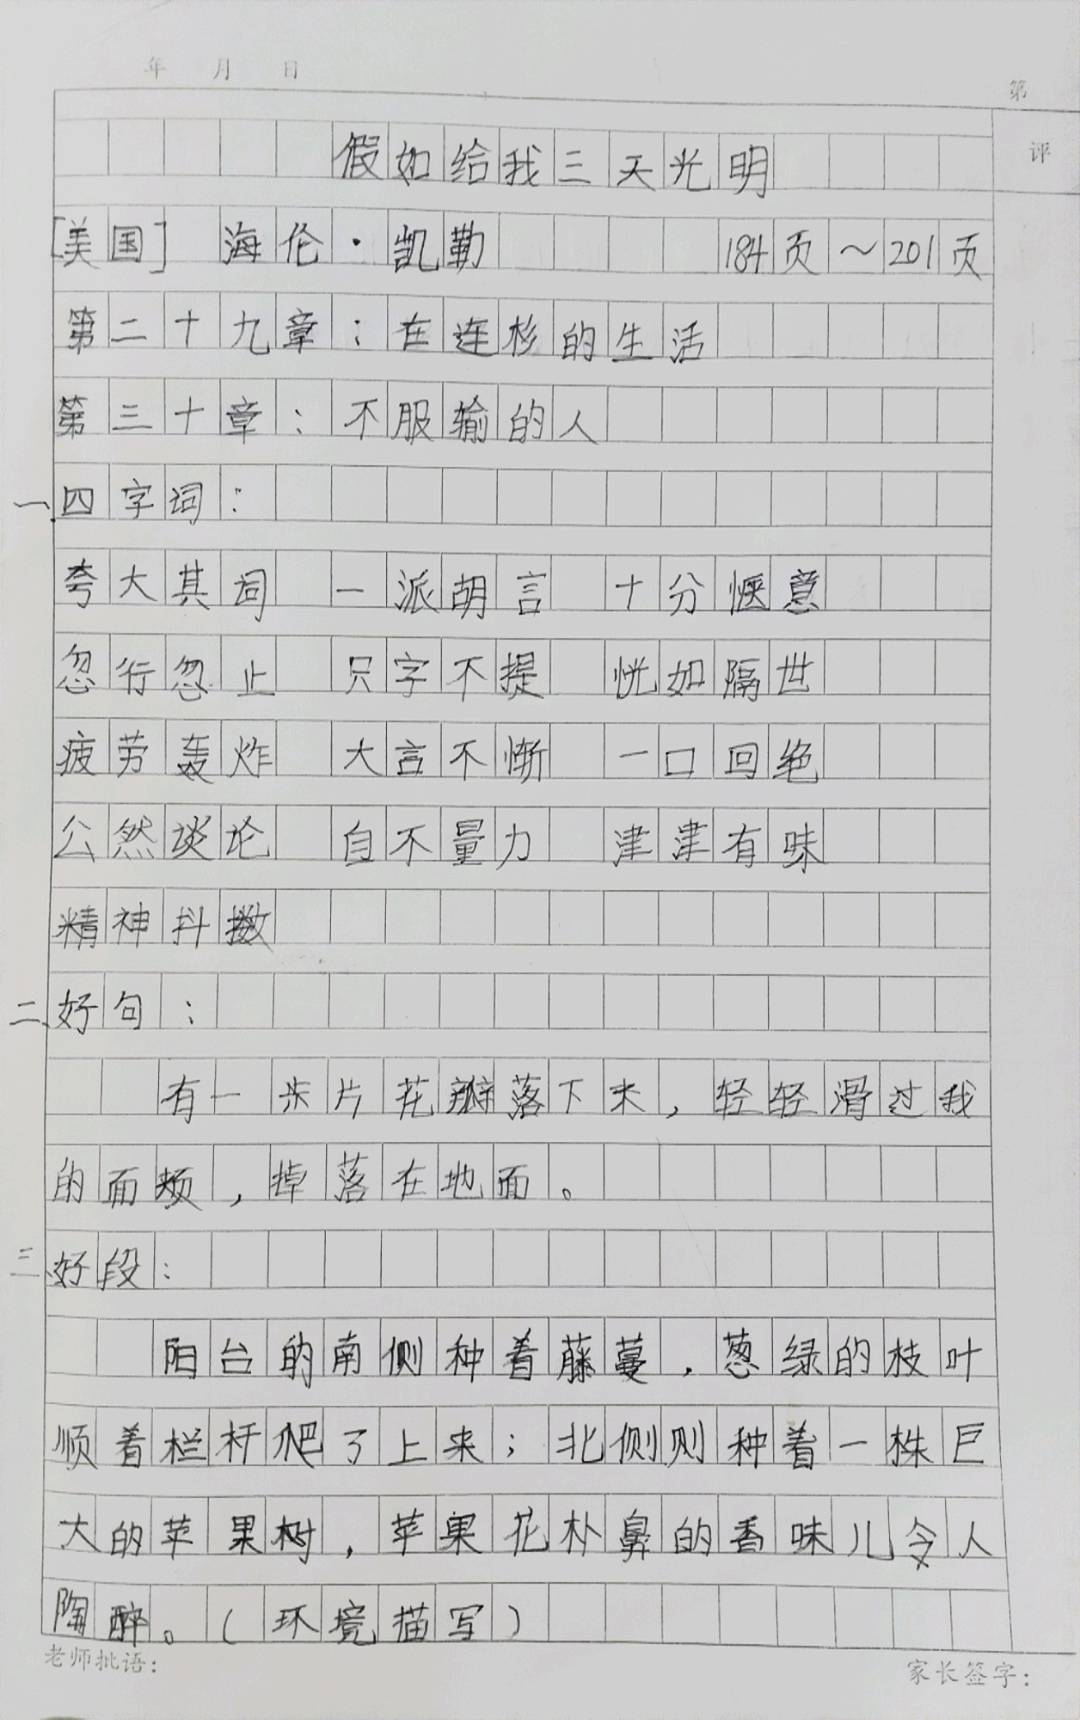 年 月 日
第
评
假如给我三天光明
[美国] 海伦·凯勒 184页~201页
第二十九章：在连杉的生活
第三十章：不服输的人
一、四字词：
夸大其词 一派胡言 十分惬意
忽行忽止 只字不提 恍如隔世
疲劳轰炸 大言不惭 一口回绝
公然谈论 自不量力 津津有味
精神抖擞
二、好句：
有一片花瓣落下来，轻轻滑过我
的面颊，掉落在地面。
三、好段：
阳台的南侧种着藤蔓，葱绿的枝叶
顺着栏杆爬了上来；北侧则种着一株巨
大的苹果树，苹果花朴鼻的香味儿令人
陶醉。（环境描写）
老师批语：
家长签字：